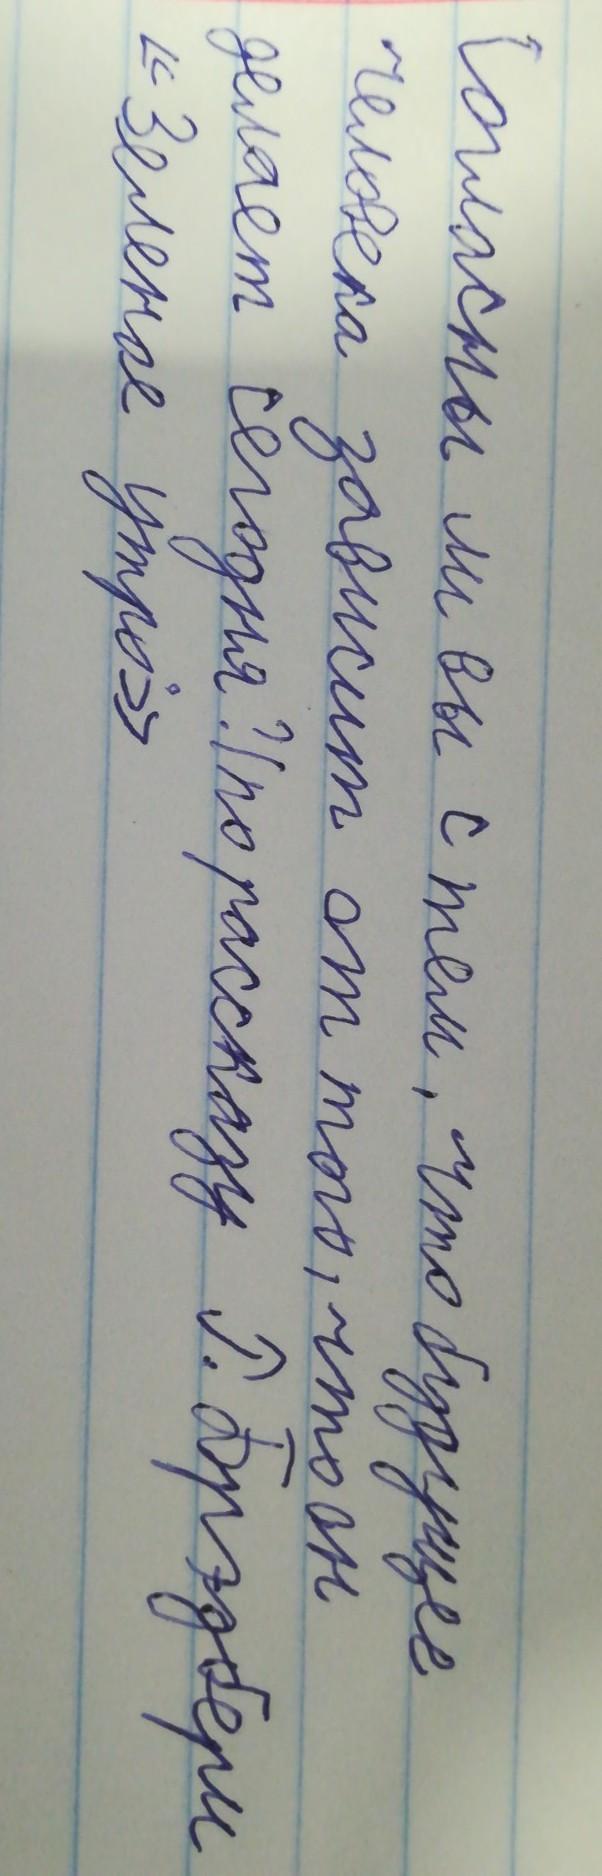 Согласны ли вы с тем, что будущее
человека зависит от того, что он
делает сегодня? (по рассказу Р. Брэдбери
«Зеленое утро»)